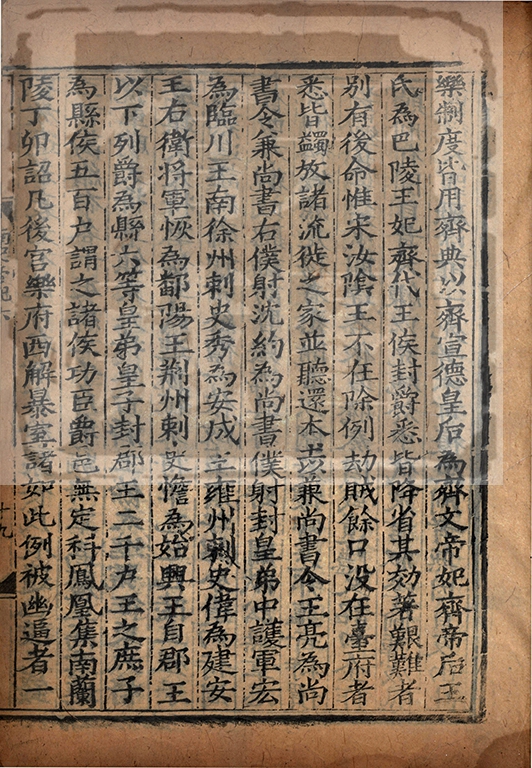 樂制度皆用齊典以齊宣德皇后為齊文帝妃齊帝后王
氏為巴陵王妃齊代王侯封爵悉皆降省其効著艱難者
別有後命惟宋汝陰王不在除例劫賊餘口没在臺府者
悉皆蠲放諸流徙之家並聽還本以兼尚書令王亮為尚
書令兼尚書右僕射沈約為尚書僕射封皇弟中護軍宏
為臨川王南徐州刺史秀為安成王雍州刺史偉為建安
王右衛將軍恢為鄱陽王荆州刺史憺為始興王自郡王
以下列爵為縣六等皇弟皇子封郡王二千户王之庶子
為縣侯五百户謂之諸侯功臣爵邑無定科鳳凰集南蘭
陵丁卯詔凡後宫樂府西解暴室諸如此例被幽逼者一
十九